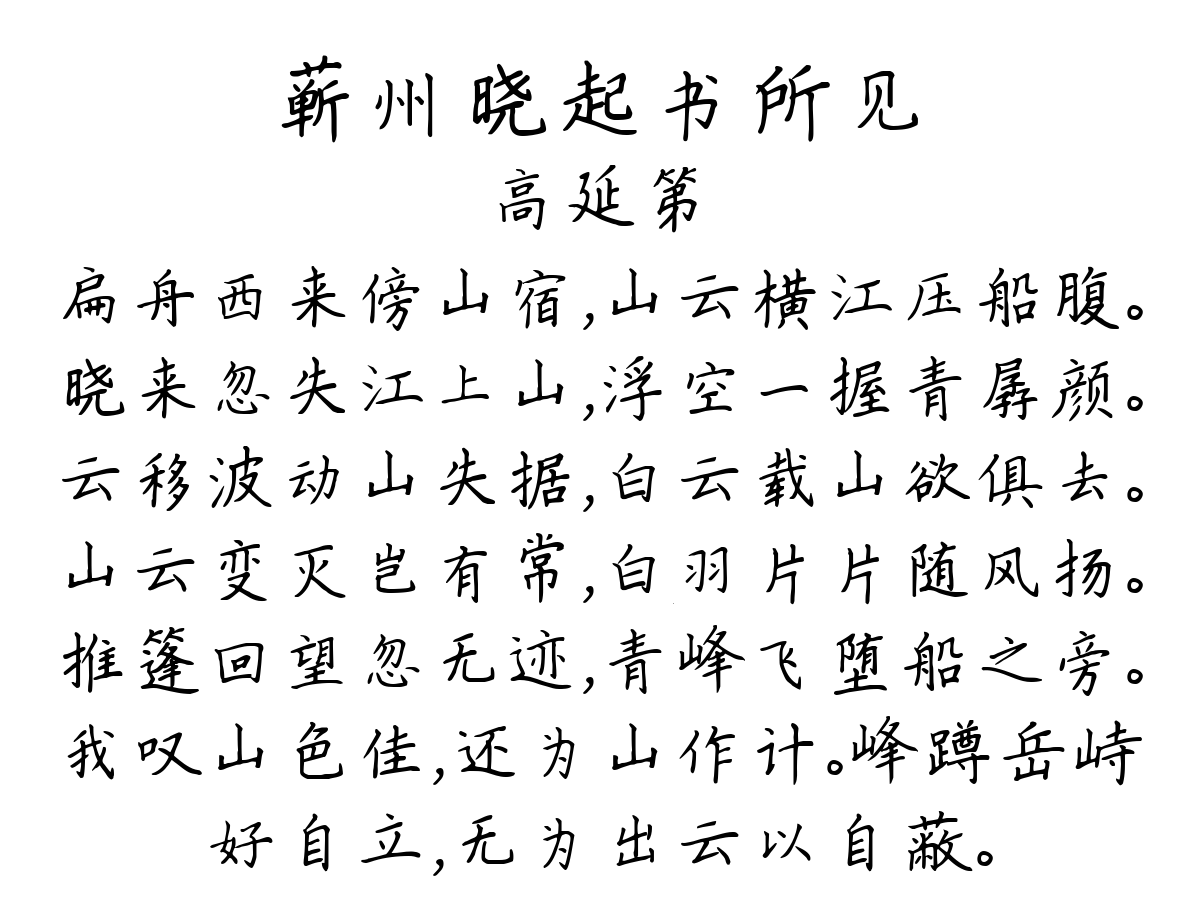 蕲州晓起书所见
高延第
扁舟西来傍山宿,山云横江压船腹。
晓来忽失江上山,浮空一握青孱颜。
云移波动山失据,白云载山欲俱去。
山云变灭岂有常,白羽片片随风扬。
推篷回望忽无迹,青峰飞堕船之旁。
我叹山色佳,还为山作计。峰蹲岳峙
好自立,无为出云以自蔽。